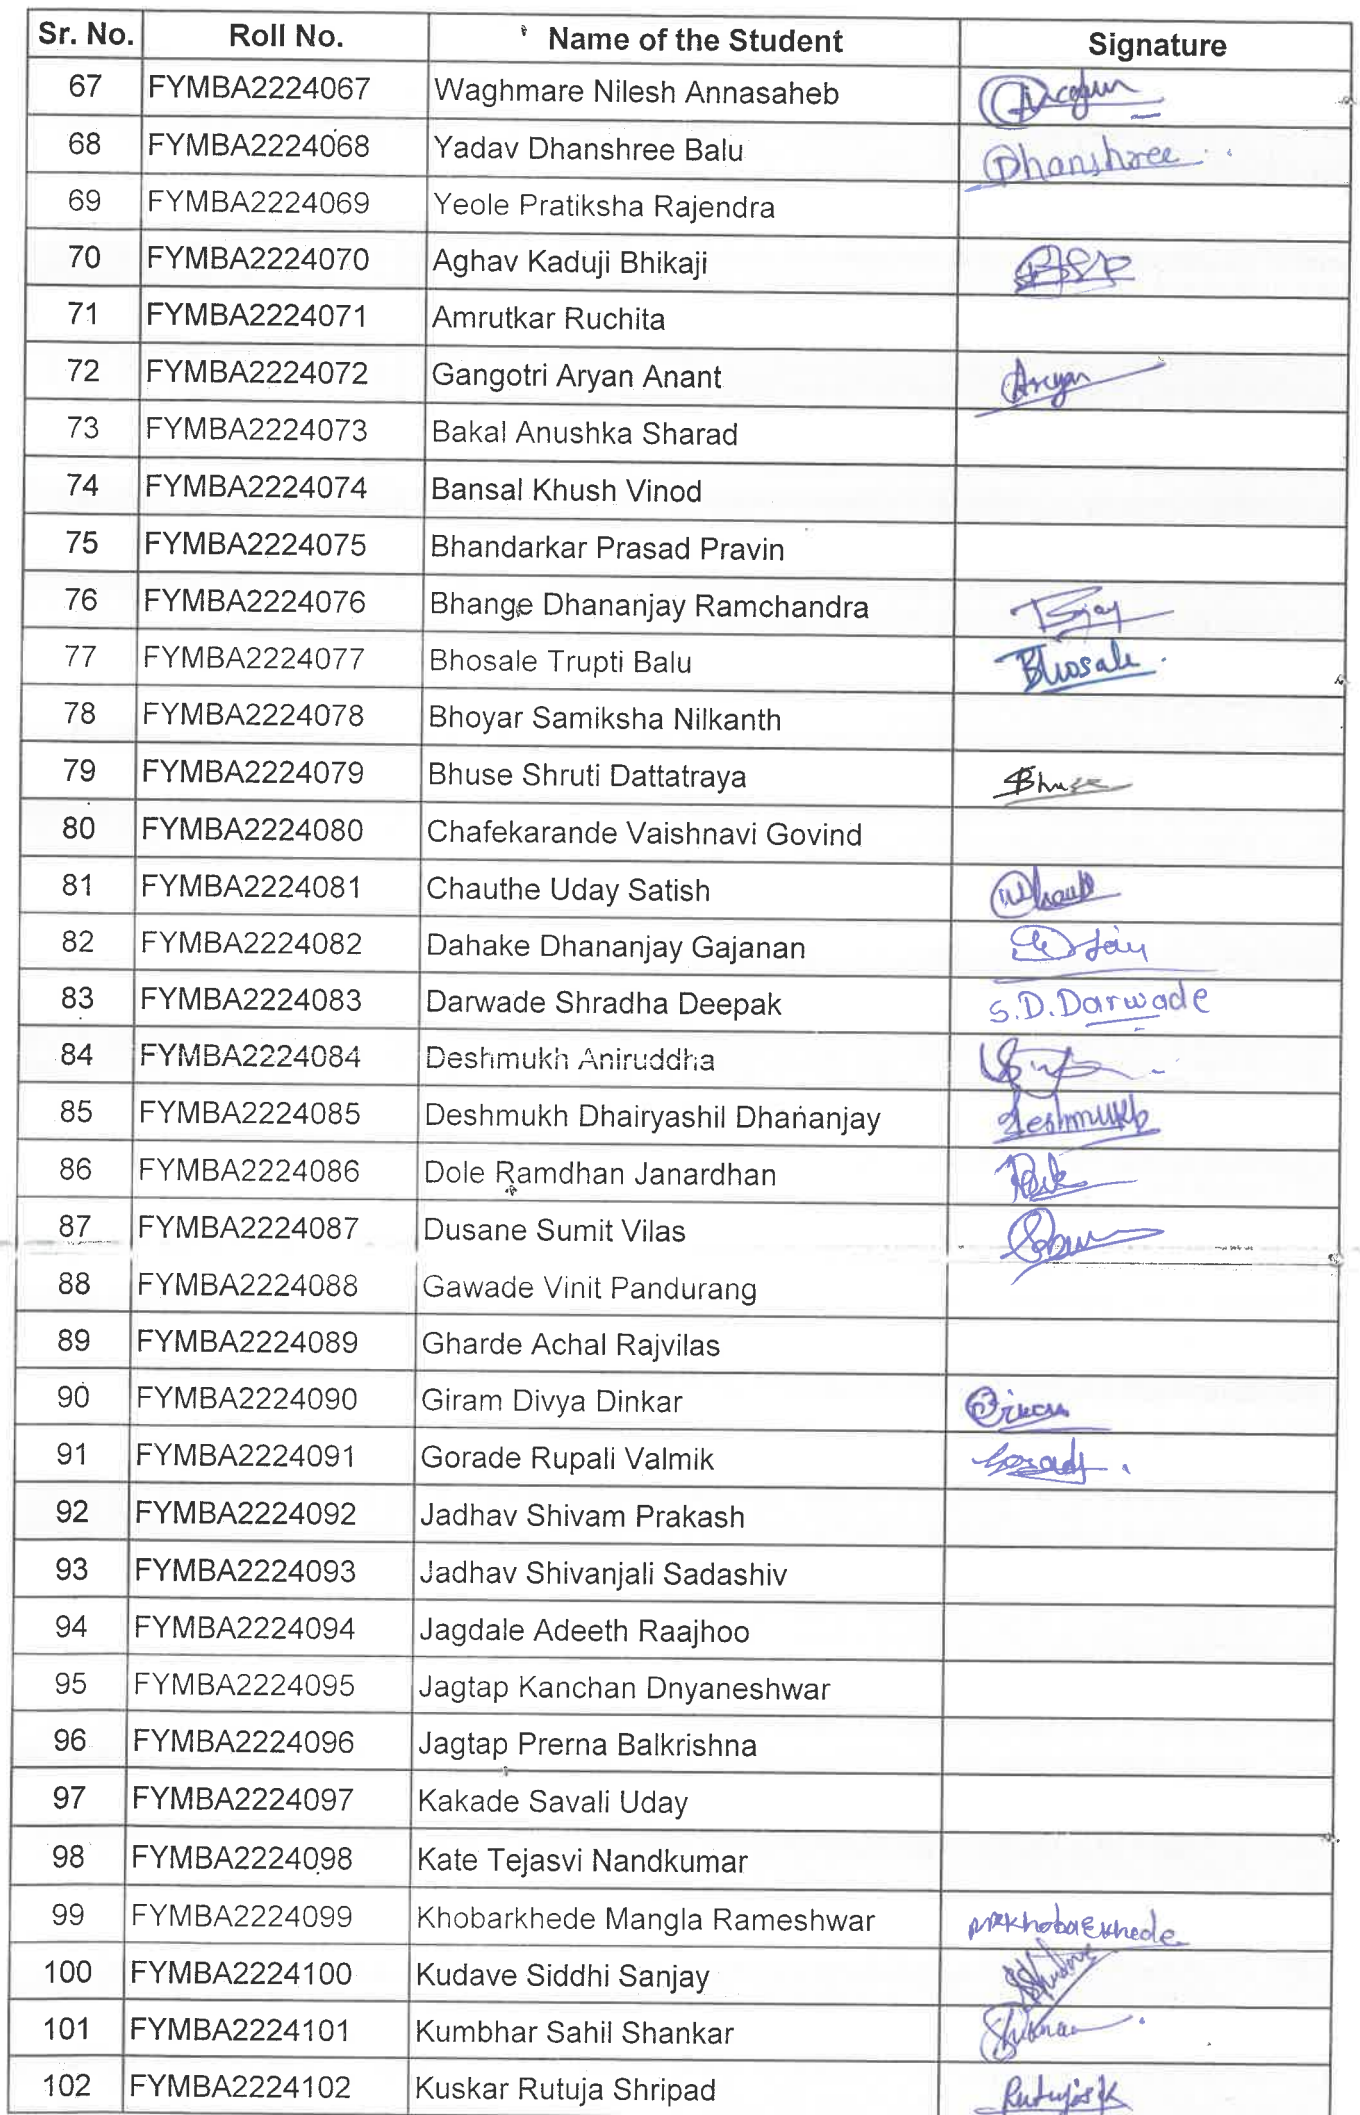 Sr. No. Roll No. Name of the Student Signature
67 FYMBA2224067 Waghmare Nilesh Annasaheb
68 FYMBA2224068 Yadav Dhanshree Balu Dhanshree
69 FYMBA2224069 Yeole Pratiksha Rajendra
70 FYMBA2224070 Aghav Kaduji Bhikaji
71 FYMBA2224071 Amrutkar Ruchita
72 FYMBA2224072 Gangotri Aryan Anant Aryan
73 FYMBA2224073 Bakal Anushka Sharad
74 FYMBA2224074 Bansal Khush Vinod
75 FYMBA2224075 Bhandarkar Prasad Pravin
76 FYMBA2224076 Bhange Dhananjay Ramchandra
77 FYMBA2224077 Bhosale Trupti Balu Bhosale
78 FYMBA2224078 Bhoyar Samiksha Nilkanth
79 FYMBA2224079 Bhuse Shruti Dattatraya Bhuse
80 FYMBA2224080 Chafekarande Vaishnavi Govind
81 FYMBA2224081 Chauthe Uday Satish
82 FYMBA2224082 Dahake Dhananjay Gajanan
83 FYMBA2224083 Darwade Shradha Deepak S.D.Darwade
84 FYMBA2224084 Deshmukh Aniruddha
85 FYMBA2224085 Deshmukh Dhairyashil Dhananjay Deshmukh
86 FYMBA2224086 Dole Ramdhan Janardhan
87 FYMBA2224087 Dusane Sumit Vilas
88 FYMBA2224088 Gawade Vinit Pandurang
89 FYMBA2224089 Gharde Achal Rajvilas
90 FYMBA2224090 Giram Divya Dinkar
91 FYMBA2224091 Gorade Rupali Valmik
92 FYMBA2224092 Jadhav Shivam Prakash
93 FYMBA2224093 Jadhav Shivanjali Sadashiv
94 FYMBA2224094 Jagdale Adeeth Raajhoo
95 FYMBA2224095 Jagtap Kanchan Dnyaneshwar
96 FYMBA2224096 Jagtap Prerna Balkrishna
97 FYMBA2224097 Kakade Savali Uday
98 FYMBA2224098 Kate Tejasvi Nandkumar
99 FYMBA2224099 Khobarkhede Mangla Rameshwar
100 FYMBA2224100 Kudave Siddhi Sanjay
101 FYMBA2224101 Kumbhar Sahil Shankar
102 FYMBA2224102 Kuskar Rutuja Shripad